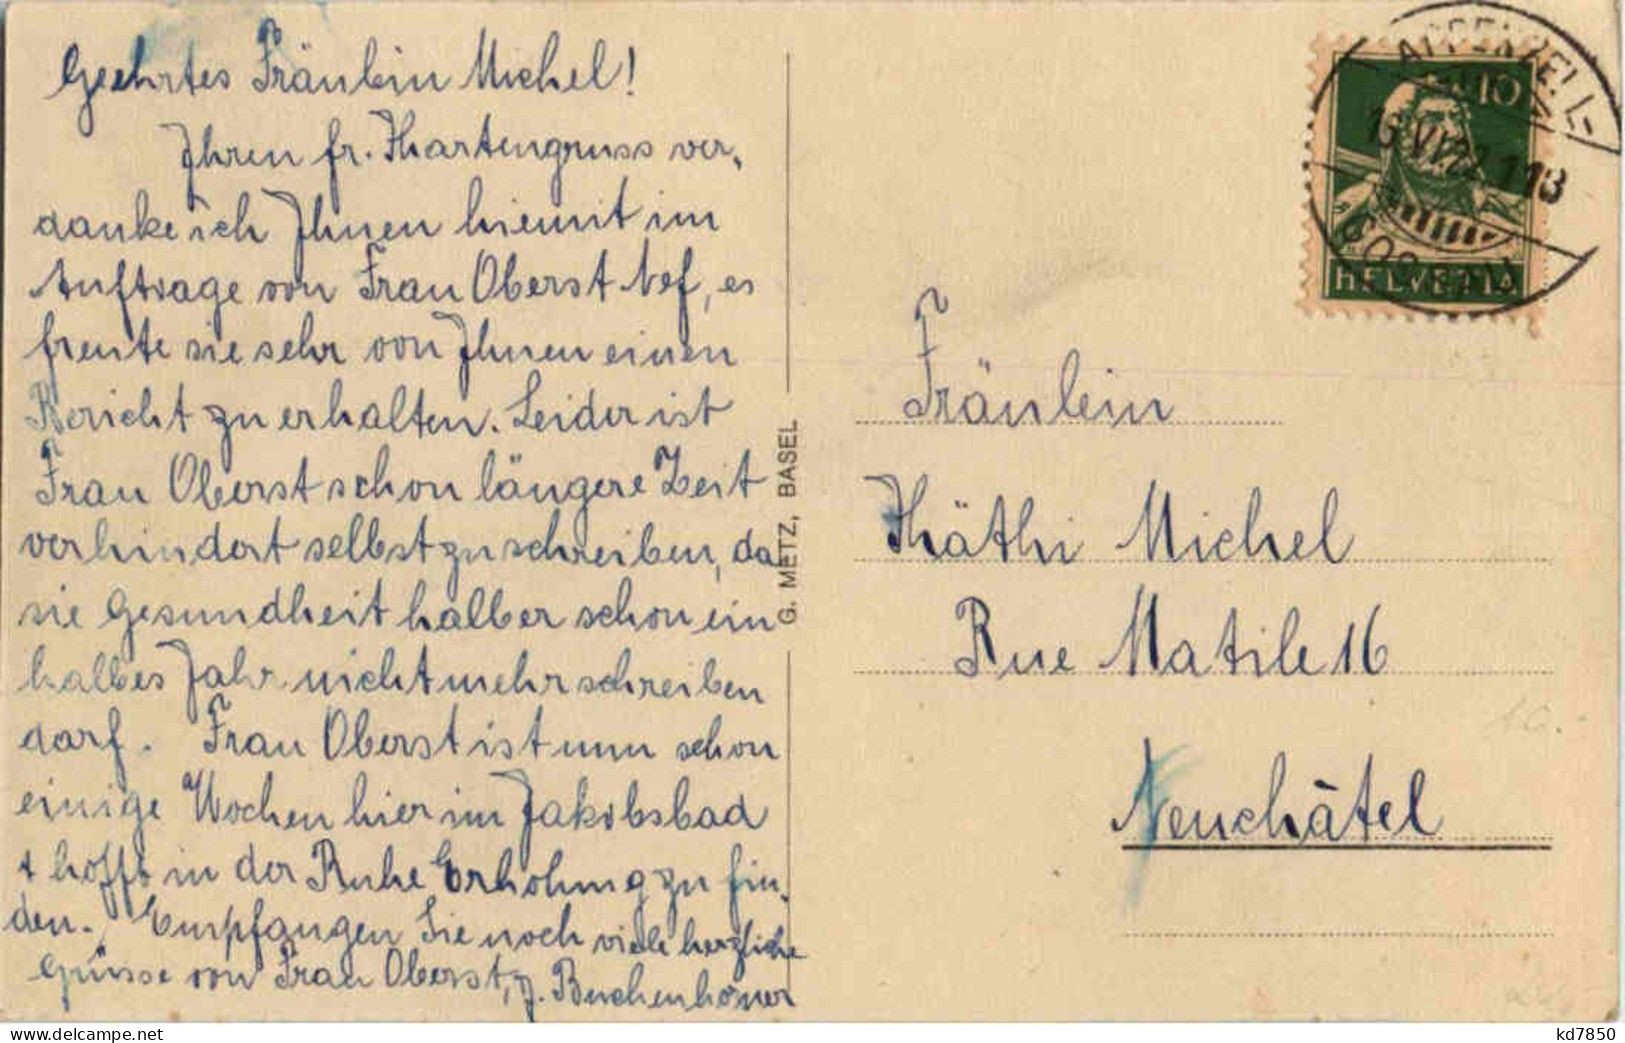 Geehrtes Fräulein Michel!
Ihren fr. Kartengruss ver-
danke ich Ihnen hiemit im
Auftrage von Frau Oberst Nef, es
freute sie sehr von Ihnen einen
Bericht zu erhalten. Leider ist
Frau Oberst schon längere Zeit
verhindert selbst zu schreiben, da
sie Gesundheit halber schon ein
halbes Jahr nicht mehr schreiben
darf. Frau Oberst ist nun schon
einige Wochen hier im Jakobsbad
+ hofft in der Ruhe Erholung zu fin-
den. Empfangen Sie noch viele herzliche
Grüsse von Frau Oberst, J.
G. METZ, BASEL
APPENZELL-
10
16.VI.22
GOSSAU
HELVETIA
Fräulein
Käthi Michel
Rue Matile 16
Neuchâtel
kd7850